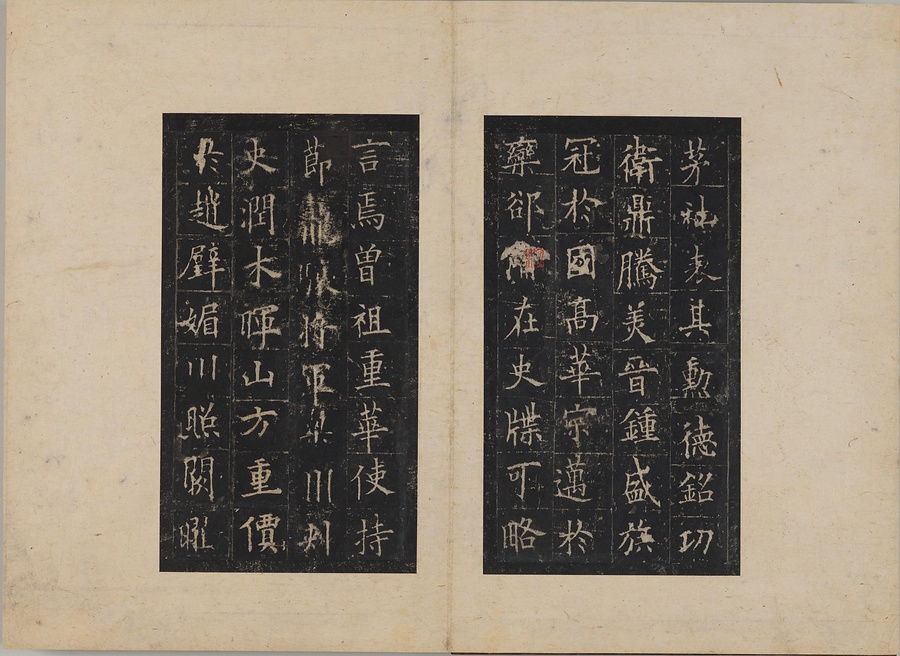 茅社表其勳德銘功
衛鼎騰美晉鍾盛族
冠於國高華宗邁於
欒郤備在史牒可略
言焉曾祖重華使持
節龍驤將軍梁州刺
史潤木暉山方重價
於趙璧媚川照闕曜